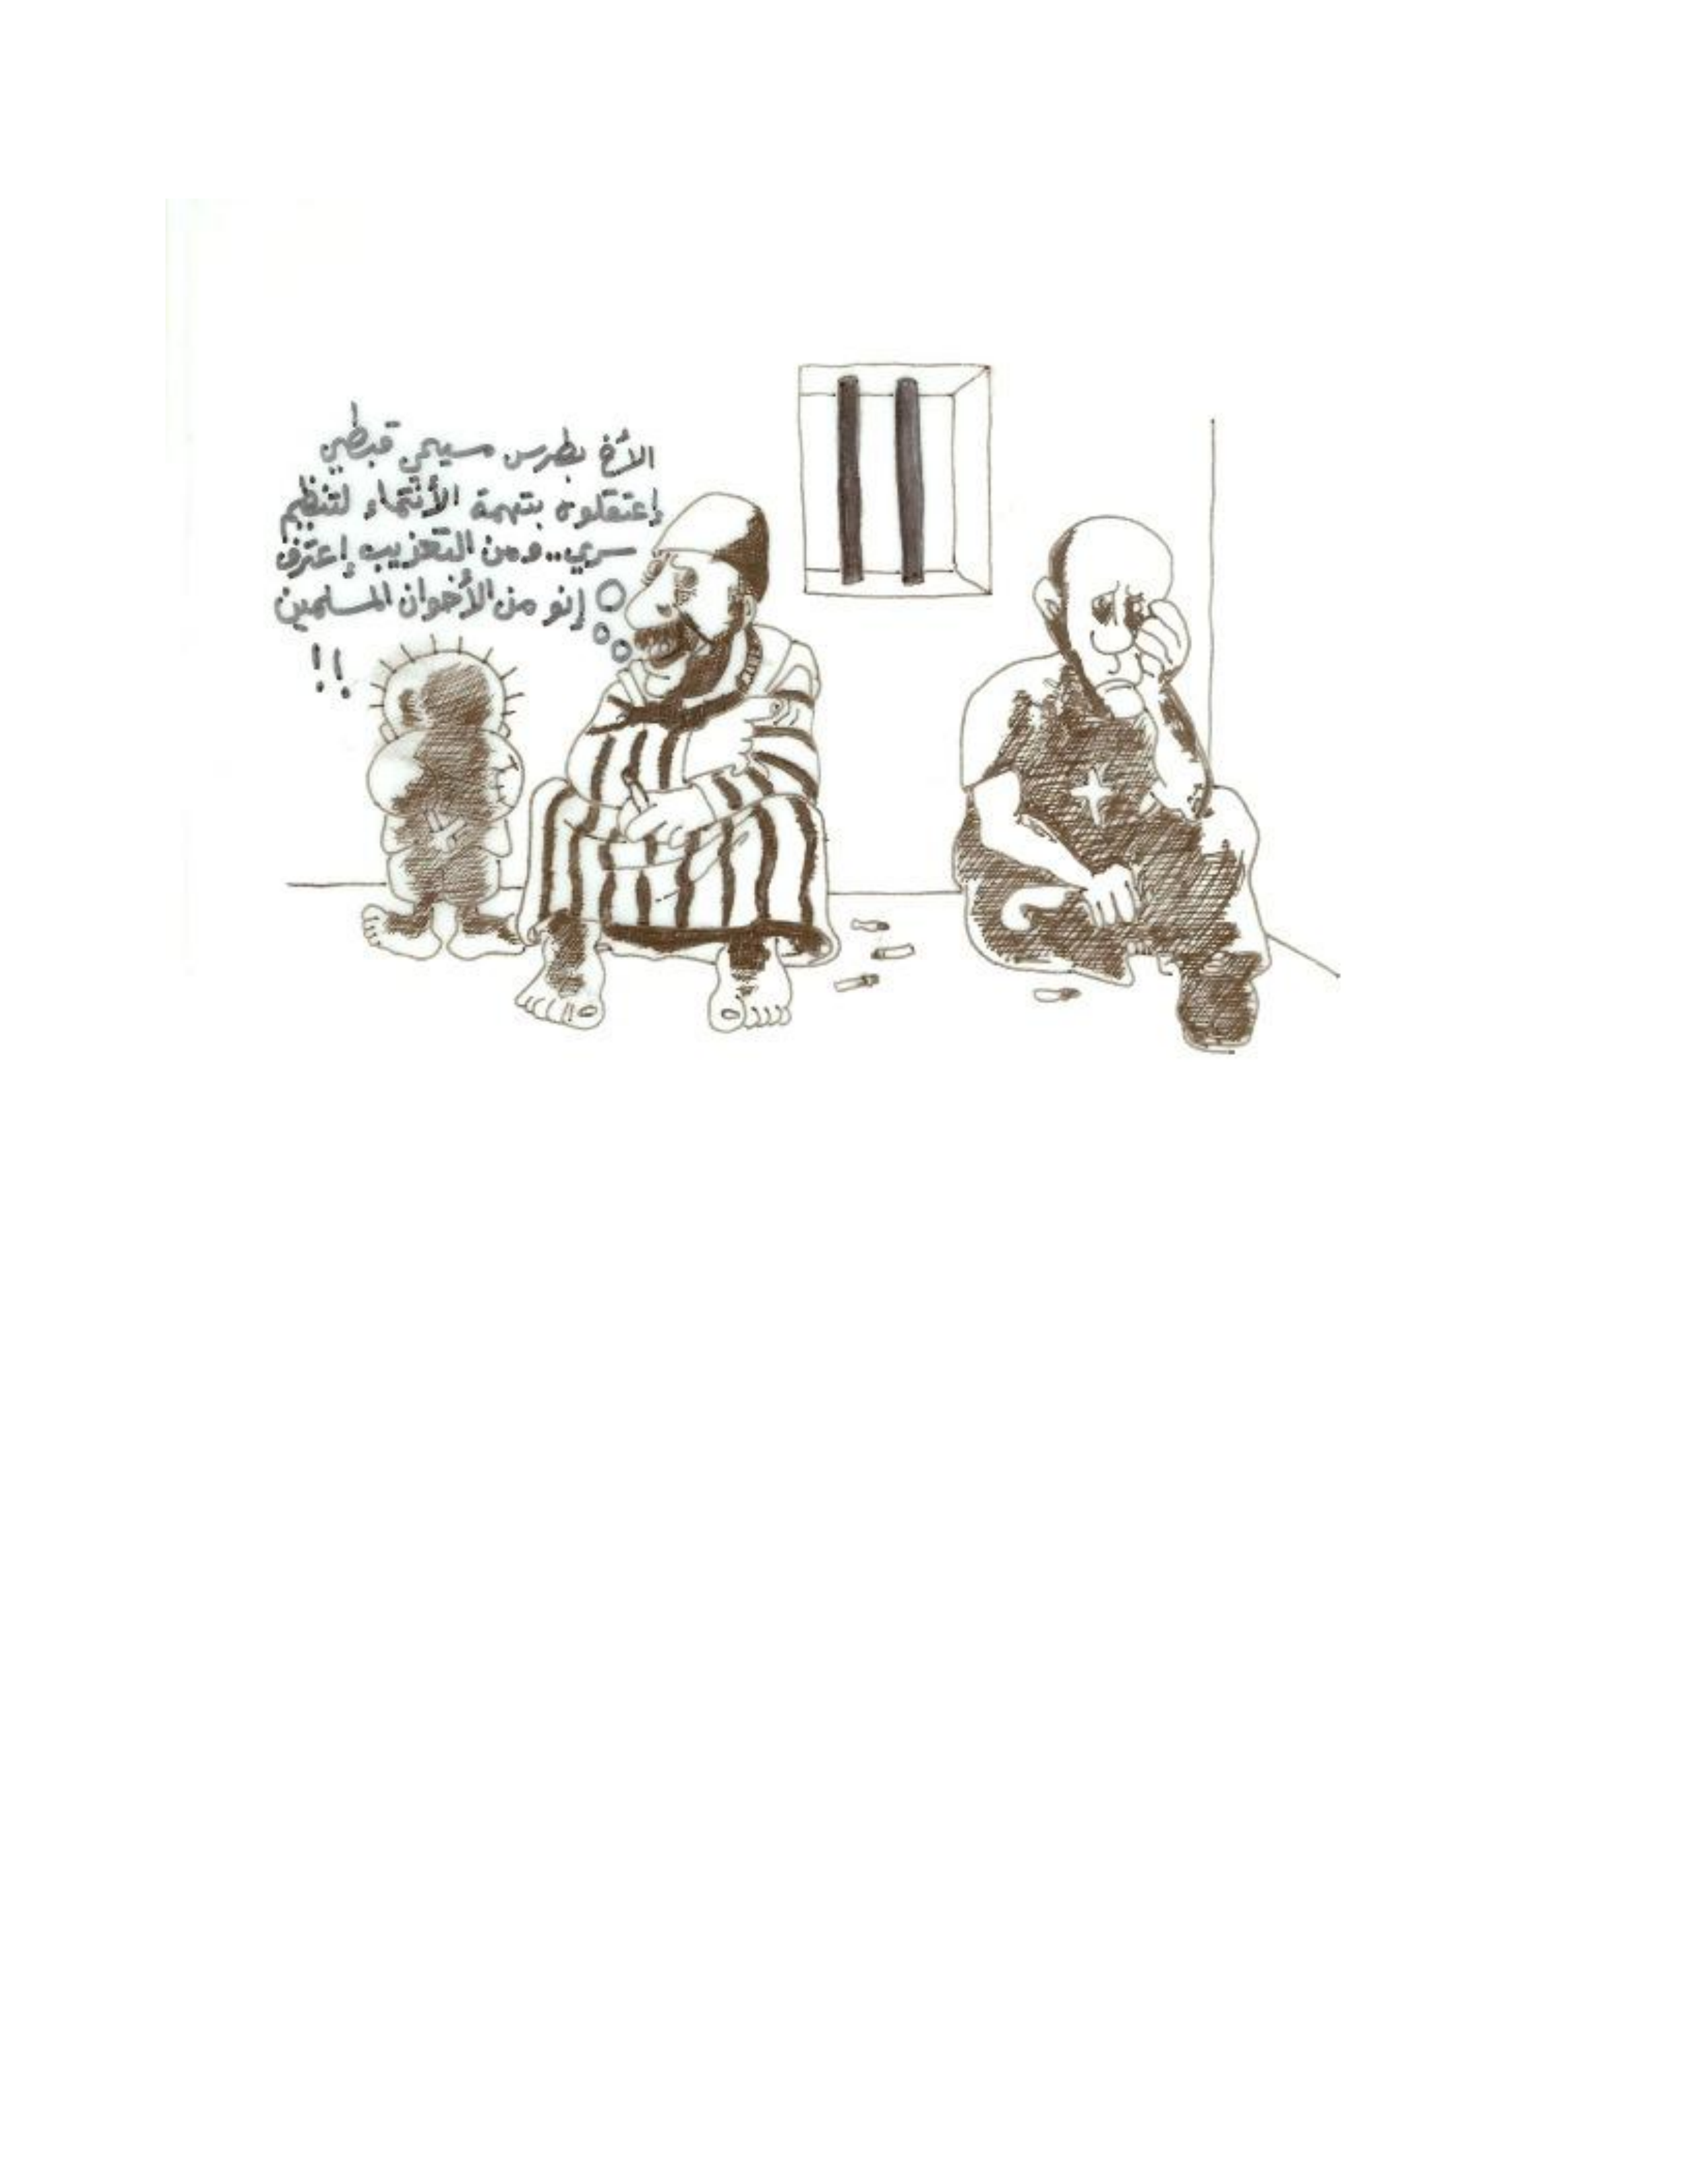 الأخ بطرس مسيحي قبطي
إعتقلوه بتهمة الأنتماء لتنظيم
سري.. ومن التعذيب إعترف
إنو من الأخوان المسلمين
!!